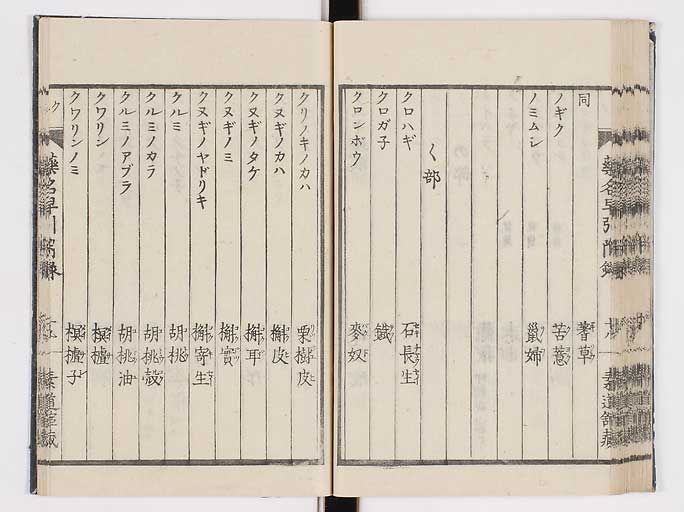 同 蓍草
ノギク 苦薏
ノミムシ 鼠婦
く部
クロハギ 石長生
クロガ子 鐵
クロンボウ 麥奴
クリノキノカハ 栗樹皮
クヌギノカハ 槲皮
クヌギノタケ 槲耳
クヌギノミ 槲實
クヌギノヤドリキ 槲寄生
クルミ 胡桃
クルミノカラ 胡桃殼
クルミノアブラ 胡桃油
クワリン 榠樝
クワリンノミ 榠樝子
ク 藥名早引附録